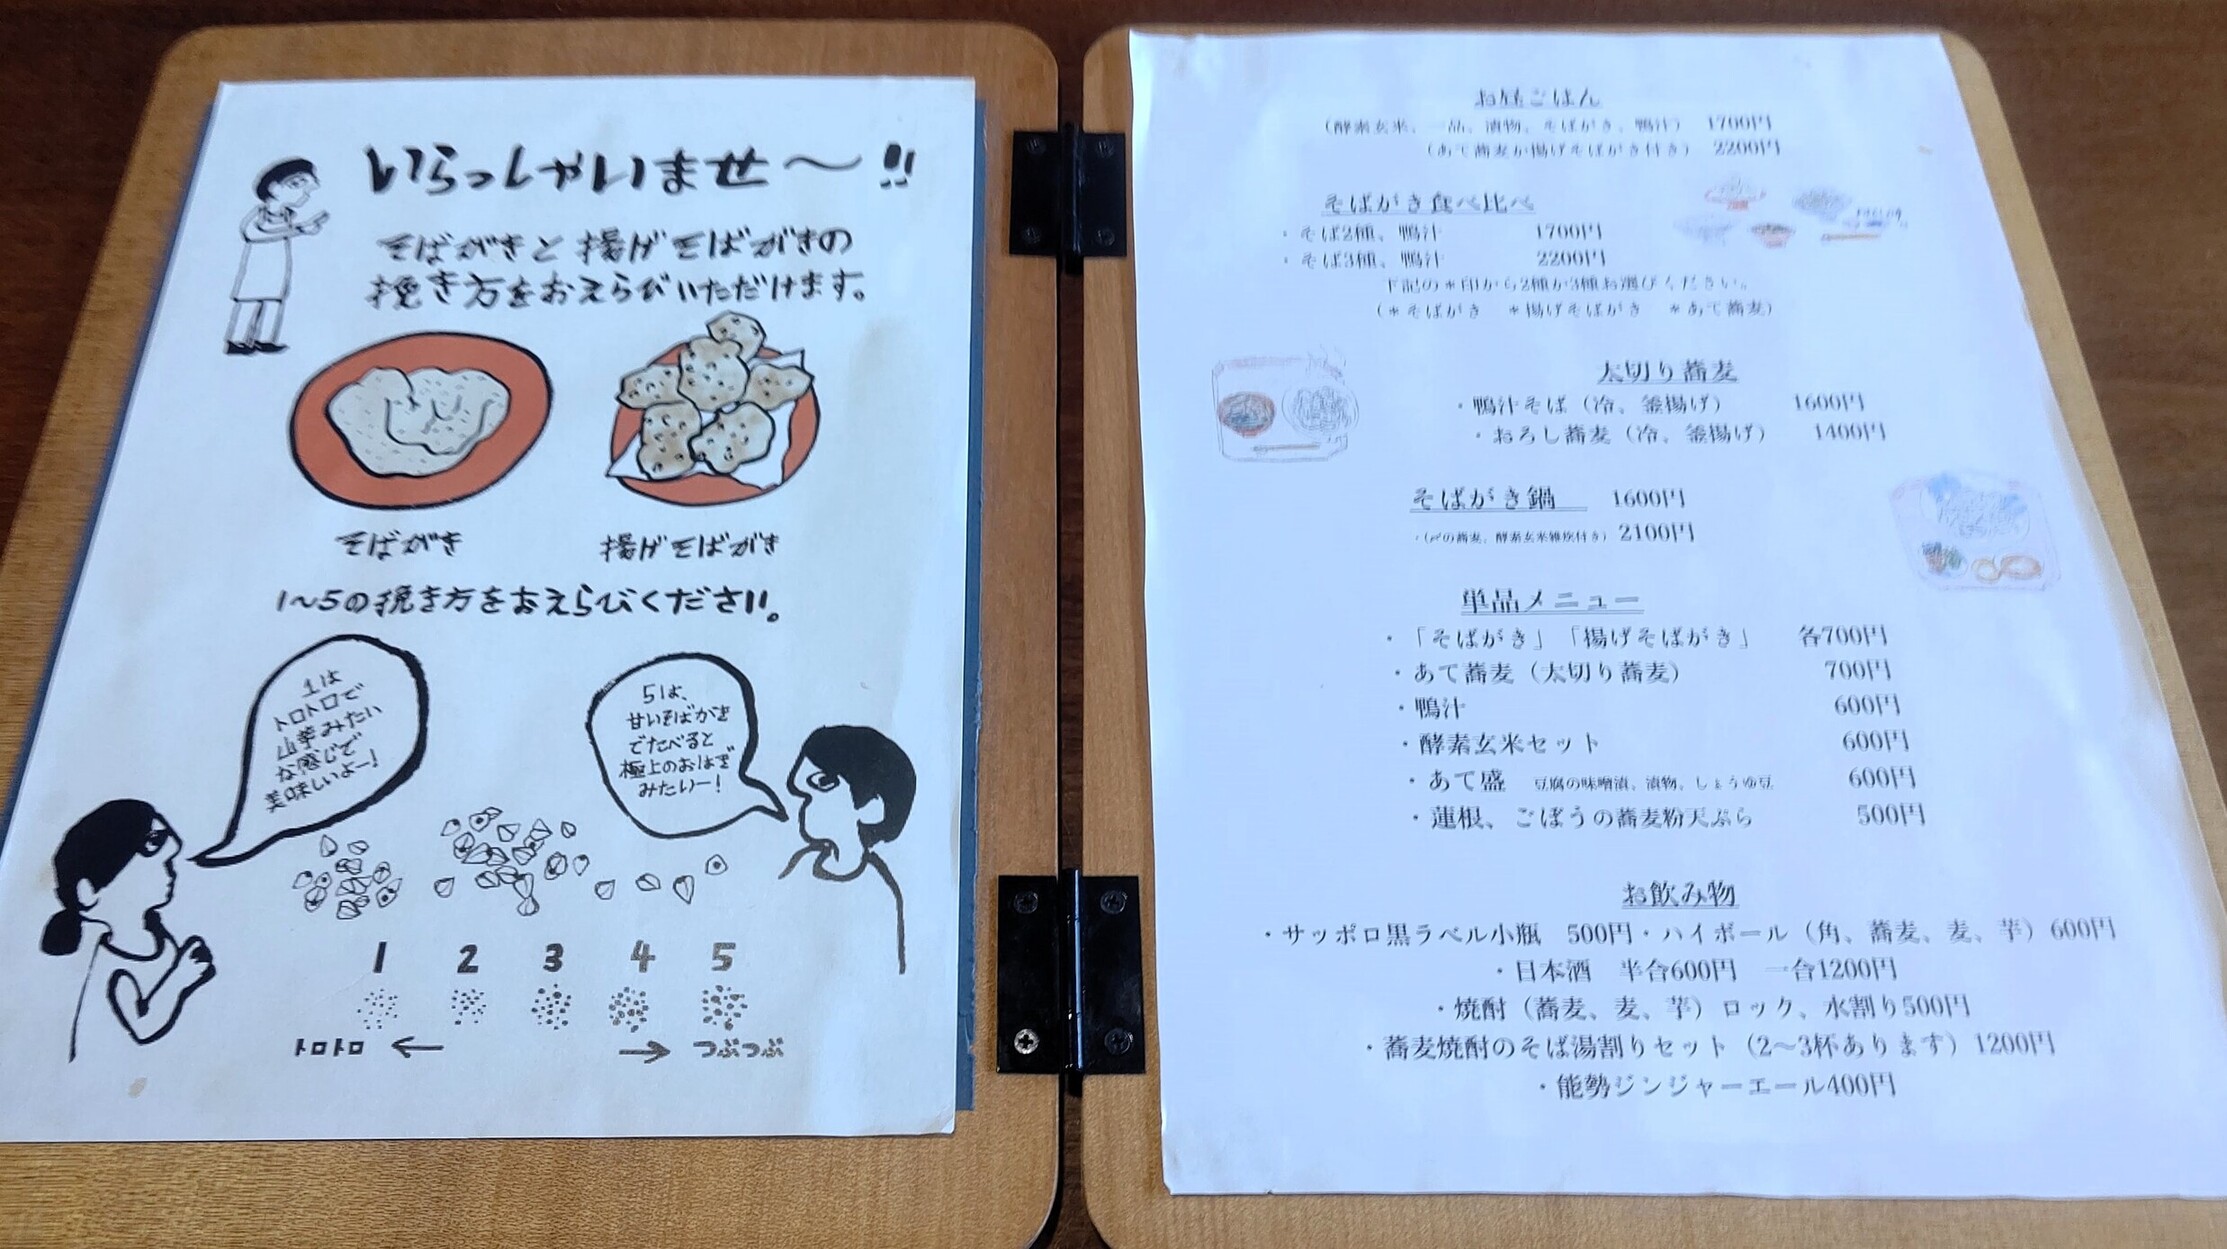 いらっしゃいませ〜!!
そばがきと揚げそばがきの
挽き方をおえらびいただけます。
そばがき
揚げそばがき
1〜5の挽き方をおえらびください。
1は
トロトロで
山芋みたい
な感じで
美味しいよー!
5は、
甘いそばがき
でたべると
極上のおはぎ
みたいー!
1 2 3 4 5
トロトロ ← → つぶつぶ
お昼ごはん
（酵素玄米、一品、漬物、そばがき、鴨汁） 1700円
（あて蕎麦か揚げそばがき付き） 2200円
そばがき食べ比べ
・そば2種、鴨汁 1700円
・そば3種、鴨汁 2200円
下記の＊印から2種か3種お選びください。
（＊そばがき ＊揚げそばがき ＊あて蕎麦）
太切り蕎麦
・鴨汁そば（冷、釜揚げ） 1600円
・おろし蕎麦（冷、釜揚げ） 1400円
そばがき鍋 1600円
・（〆の蕎麦、酵素玄米雑炊付き）2100円
単品メニュー
・「そばがき」「揚げそばがき」 各700円
・あて蕎麦（太切り蕎麦） 700円
・鴨汁 600円
・酵素玄米セット 600円
・あて盛 豆腐の味噌漬、漬物、しょうゆ豆 600円
・蓮根、ごぼうの蕎麦粉天ぷら 500円
お飲み物
・サッポロ黒ラベル小瓶 500円・ハイボール（角、蕎麦、麦、芋）600円
・日本酒 半合600円 一合1200円
・焼酎（蕎麦、麦、芋）ロック、水割り500円
・蕎麦焼酎のそば湯割りセット（2〜3杯あります）1200円
・能勢ジンジャーエール400円